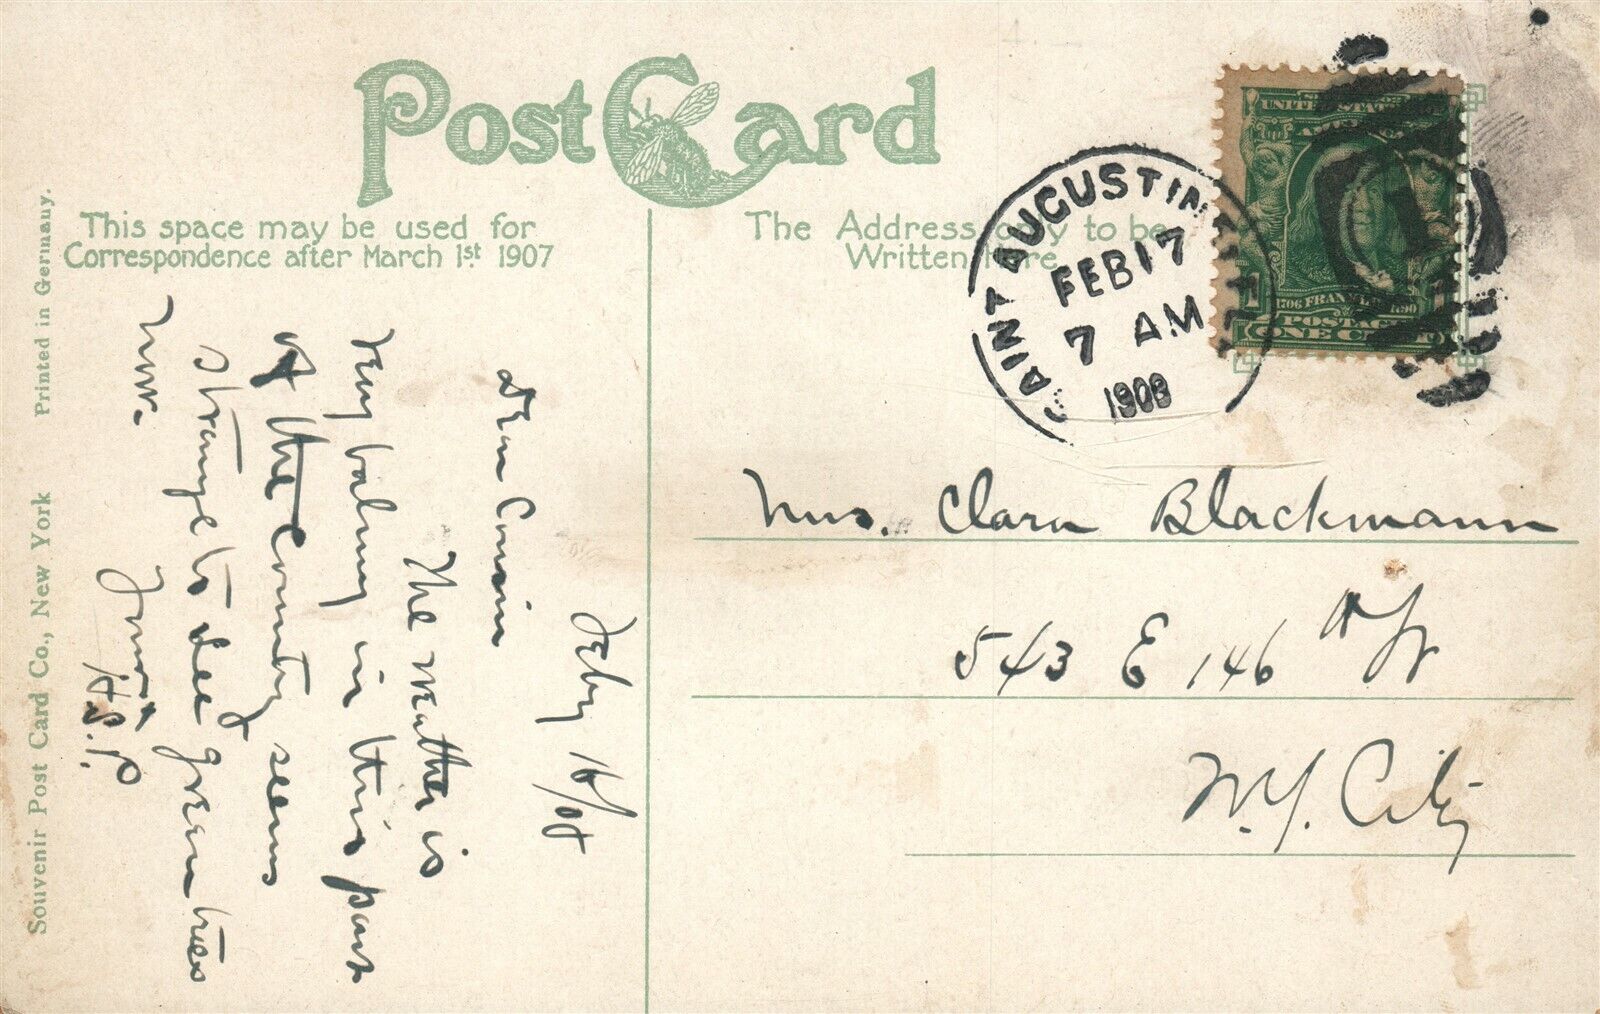 Post Card
This space may be used for
Correspondence after March 1st 1907
The Address only to be
Written here
SAINT AUGUSTINE, FLA.
FEB 17
7 AM
1908
UNITED STATES
OF AMERICA
1706 FRANKLIN 1790
POSTAGE
ONE CENT
1
Mrs. Clara Blackmann
543 E 146th St
N.Y. City
Feby 16/08
Dear Cousin
The weather is
very balmy in this part
of the country seems
strange to see green trees
now.
Yours
H.S.P.
Souvenir Post Card Co., New York Printed in Germany.